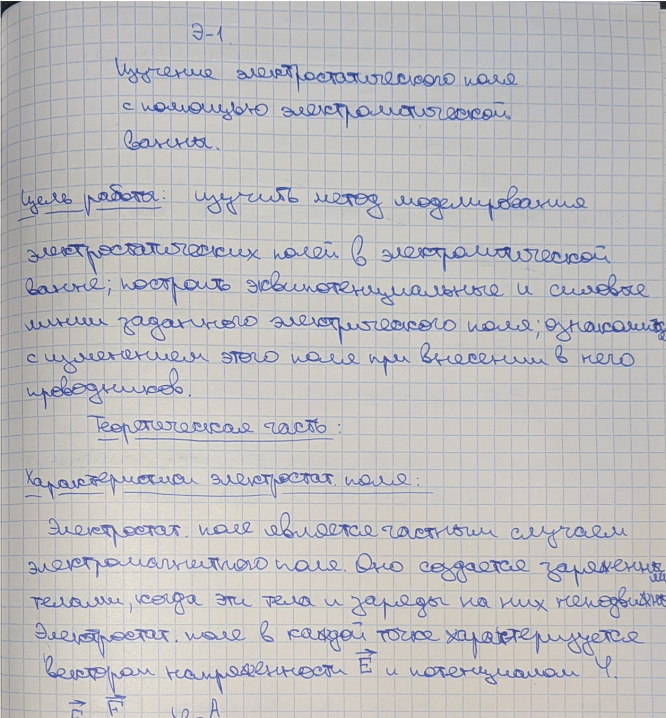 Э-1.
Изучение электростатического поля
с помощью электролитической
ванны.
Цель работы: изучить метод моделирования
электростатических полей в электролитической
ванне; построить эквипотенциальные и силовые
линии заданного электрического поля; ознакомиться
с изменением этого поля при внесении в него
проводников.
Теоретическая часть:
Характеристики электростат. поля:
Электростат. поле является частным случаем
электромагнитного поля. Оно создается заряженными
телами, когда эти тела и заряды на них неподвижны.
Электростат. поле в каждой точке характеризуется
вектором напряженности E⃗ и потенциалом φ.